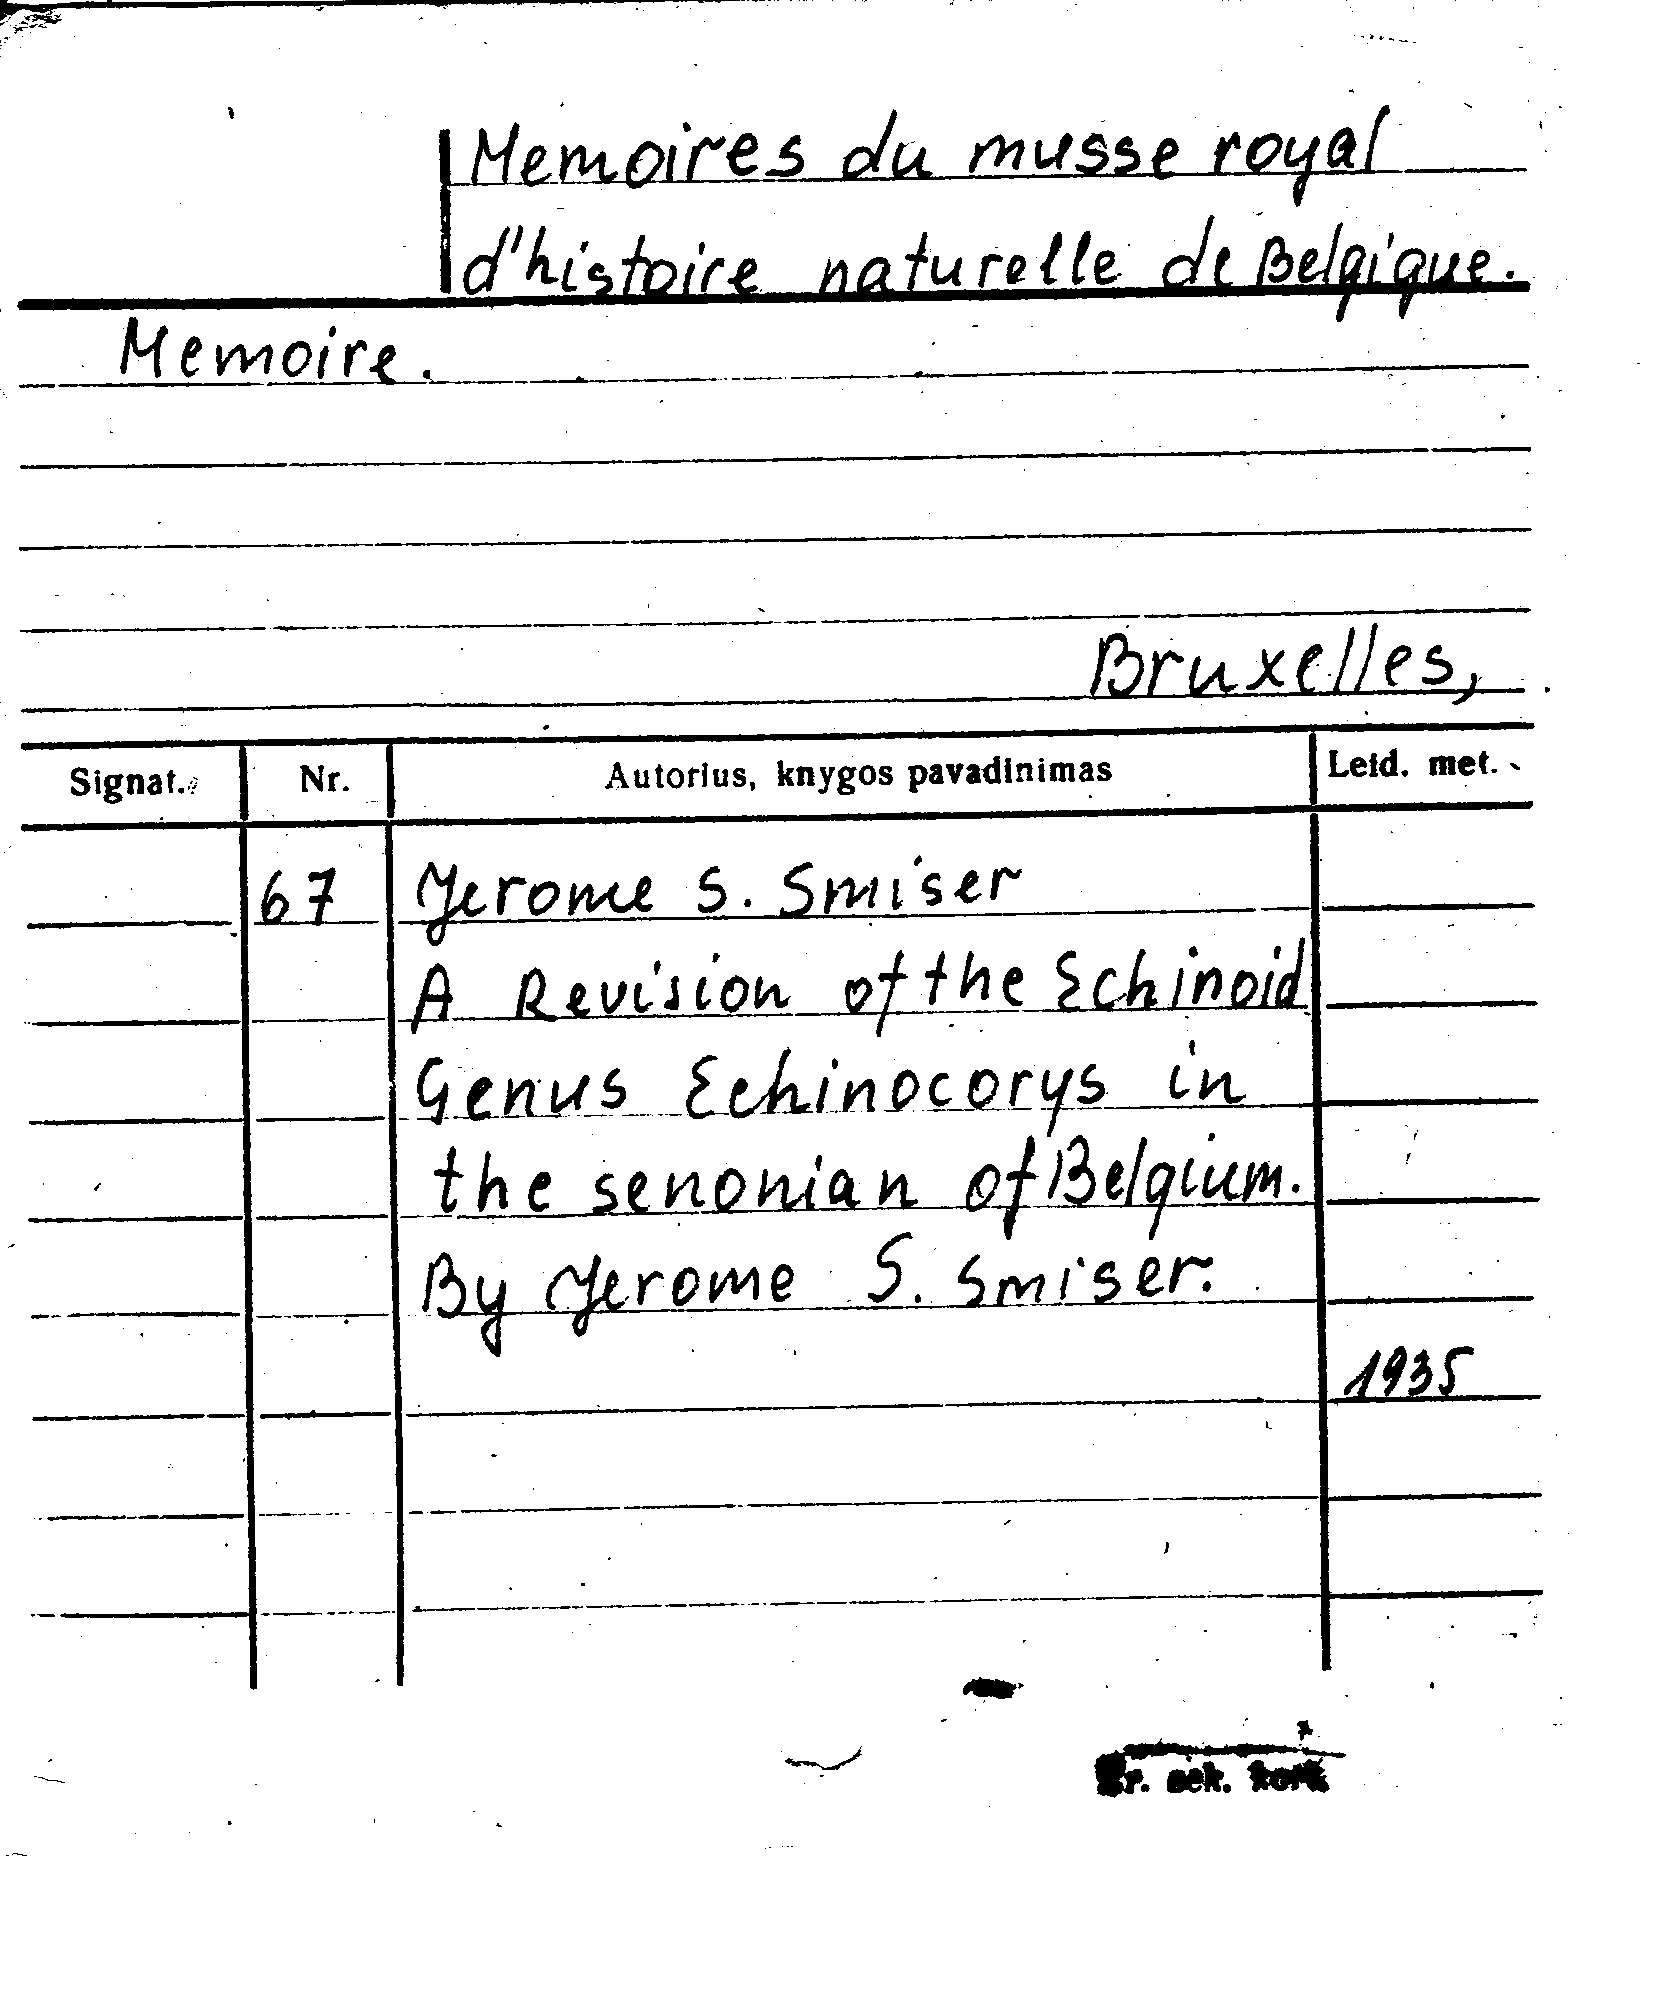 Memoires du musse royal
d'histoire naturelle de Belgique.
Memoire.
Bruxelles,
Signat. Nr. Autorius, knygos pavadinimas Leid. met.
67 Jerome S. Smiser
A Revision of the Echinoid
Genus Echinocorys in
the senonian of Belgium.
By Jerome S. Smiser.
1935